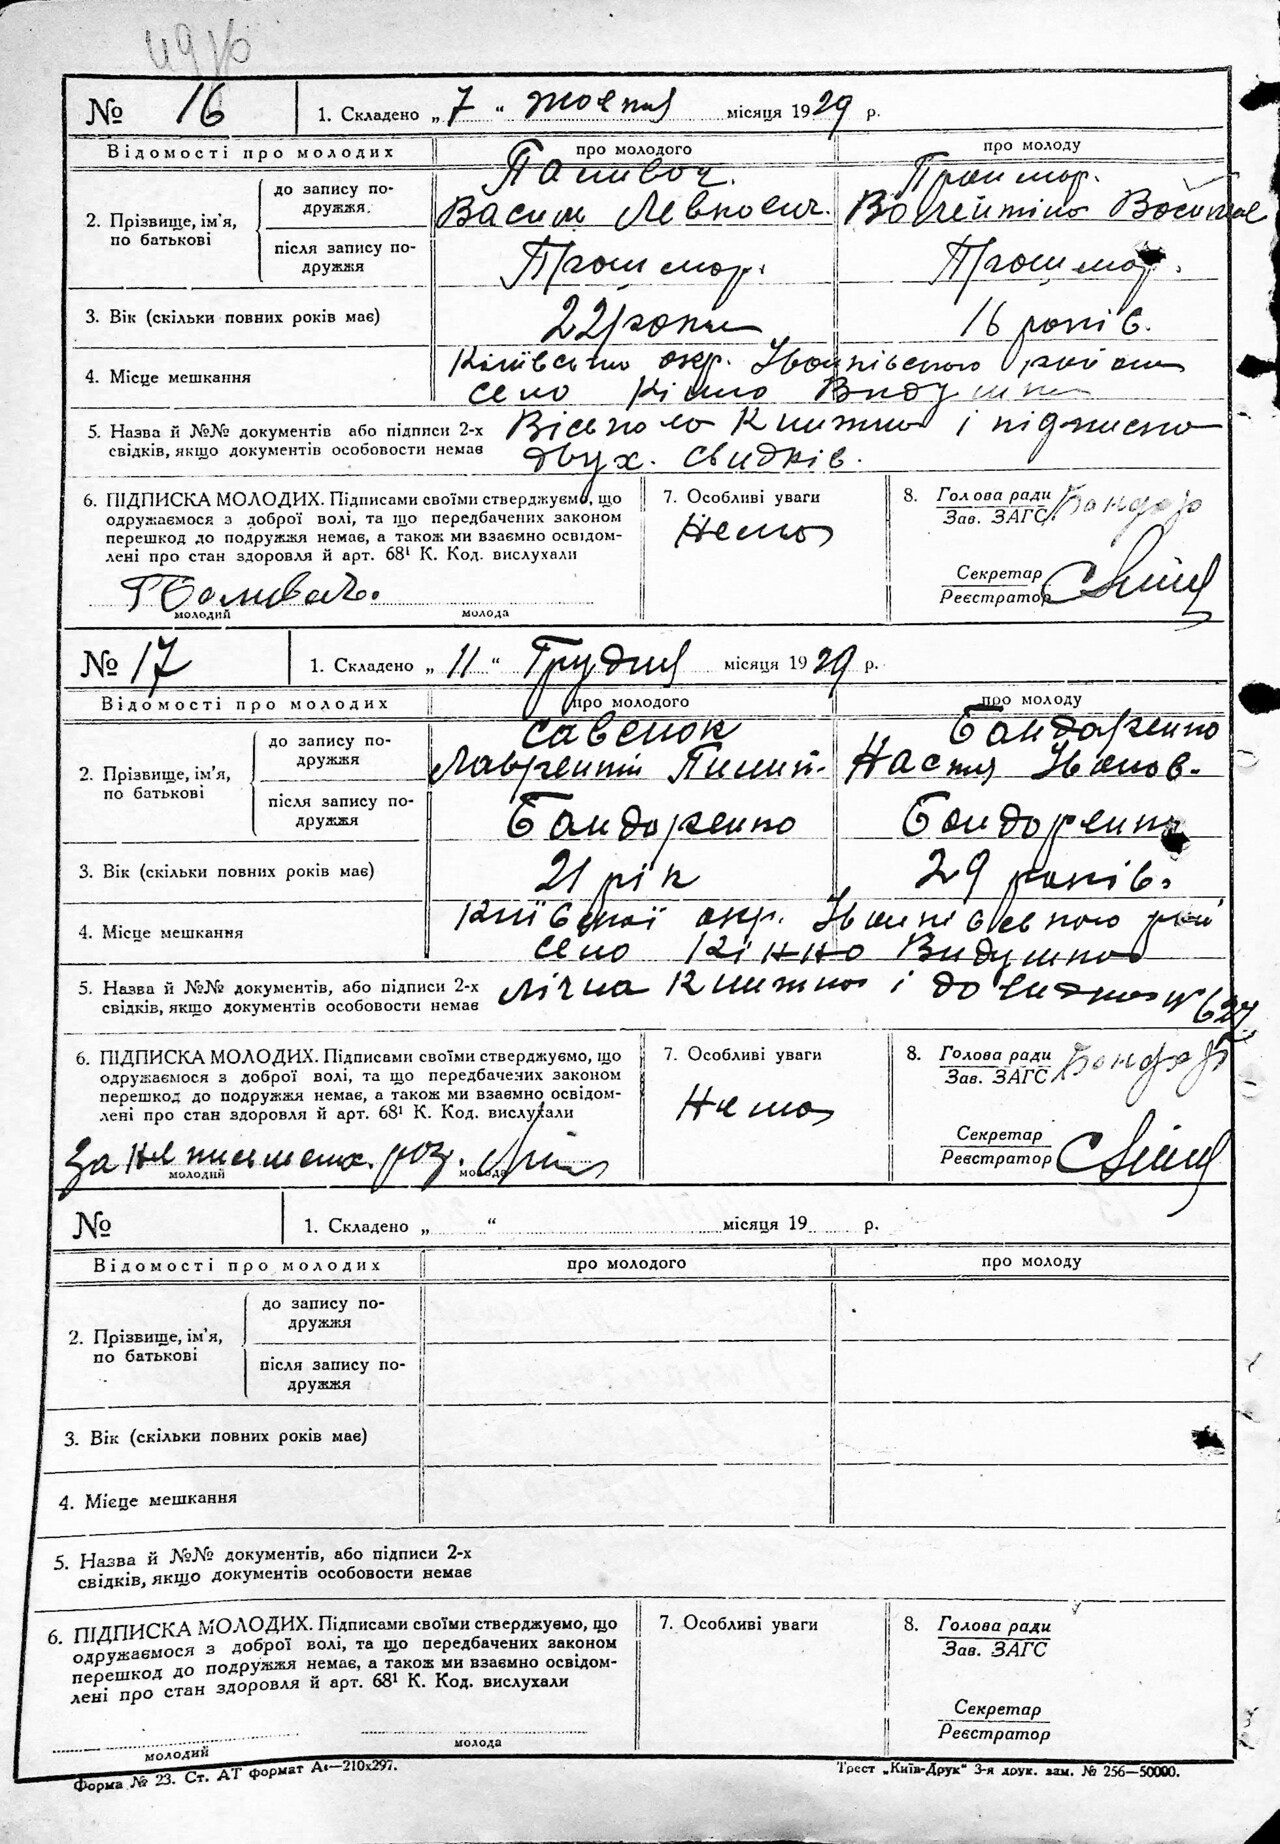 № 16
1. Складено „ 7 “ жовтня місяця 1929 р.
Відомості про молодих
про молодого
про молоду
2. Прізвище, ім’я, по батькові
до запису подружжя.
Василь Левкович.
після запису подружжя
3. Вік (скільки повних років має)
22 роки
16 років.
4. Місце мешкання
окр. Іванківського району
село
5. Назва й №№ документів або підписи 2-х
свідків, якщо документів особовости немає
книжка і підписка
двух. свидків.
6. ПІДПИСКА МОЛОДИХ. Підписами своїми стверджуємо, що
одружаємося з доброї волі, та що передбачених законом
перешкод до подружжя немає, а також ми взаємно освідом-
лені про стан здоровля й арт. 68¹ К. Код. вислухали
молодий
молода
7. Особливі уваги
Нема
8. Голова ради
Зав. ЗАГС
Бондар
Секретар
Реєстратор
№ 17
1. Складено „ 11 “ Грудня місяця 1929 р.
Відомості про молодих
про молодого
про молоду
2. Прізвище, ім’я,
по батькові
до запису по-
дружжя
Савенок
Бондаренко
Лаврентій Пилип.
Настя Іванов.
після запису по-
дружжя
Бондаренко
Бондаренко
3. Вік (скільки повних років має)
21 рік
29 років.
4. Місце мешкання
Київської окр. Іванківського рай
село
5. Назва й №№ документів, або підписи 2-х
свідків, якщо документів особовости немає
Лічна книжка і довидка № 627
6. ПІДПИСКА МОЛОДИХ. Підписами своїми стверджуємо, що
одружаємося з доброї волі, та що передбачених законом
перешкод до подружжя немає, а також ми взаємно освідом-
лені про стан здоровля й арт. 68¹ К. Код. вислухали
За не письмен. роз.
молодий
молода
7. Особливі уваги
Нема
8. Голова ради
Зав. ЗАГС
Бондар
Секретар
Реєстратор
№
1. Складено „ “ місяця 19 р.
Відомості про молодих
про молодого
про молоду
2. Прізвище, ім’я,
по батькові
до запису по-
дружжя
після запису по-
дружжя
3. Вік (скільки повних років має)
4. Місце мешкання
5. Назва й №№ документів, або підписи 2-х
свідків, якщо документів особовости немає
6. ПІДПИСКА МОЛОДИХ. Підписами своїми стверджуємо, що
одружаємося з доброї волі, та що передбачених законом
перешкод до подружжя немає, а також ми взаємно освідом-
лені про стан здоровля й арт. 68¹ К. Код. вислухали
молодий
молода
7. Особливі уваги
8. Голова ради
Зав. ЗАГС
Секретар
Реєстратор
Форма № 23. Ст. АТ формат А₄—210х297.
Трест „Київ-Друк“ 3-я друк. зам. № 256—50000.